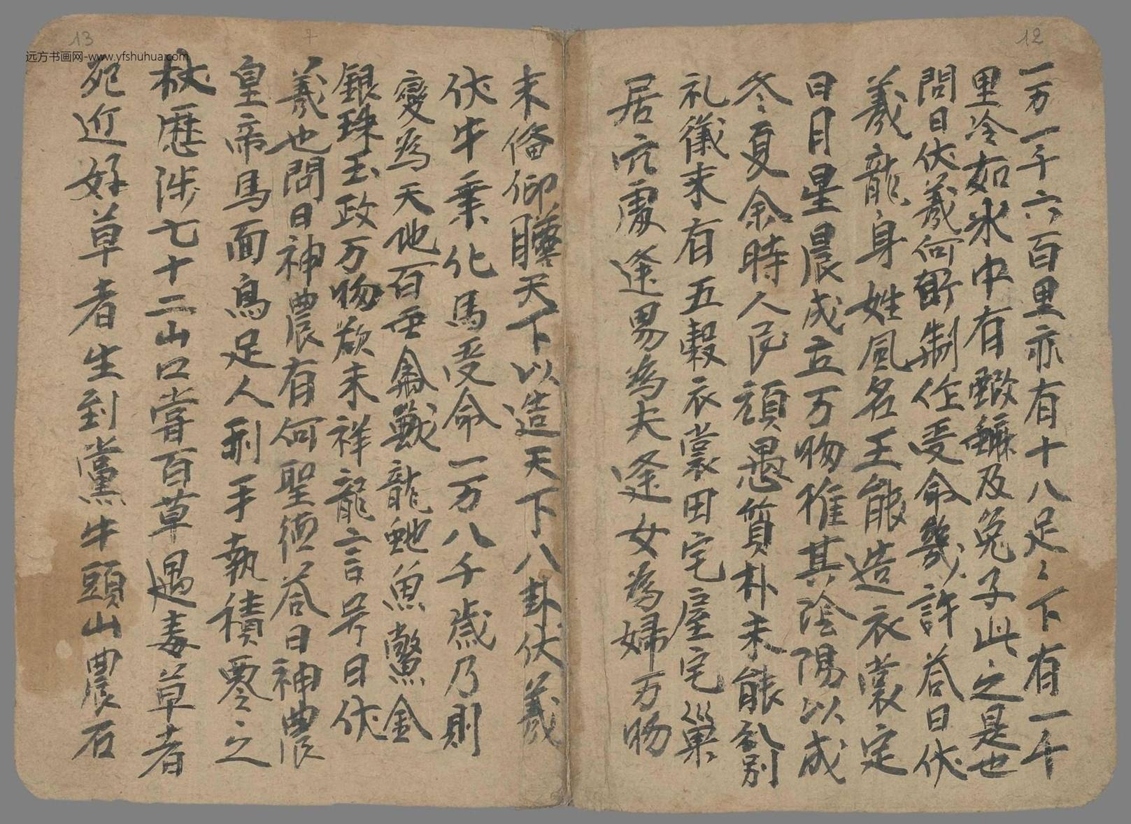 12
一万一千六百里亦有十八足〻下有一千
里冷如氷中有及兔子此之是也
問曰伏羲何所制作受命幾許荅曰伏
羲龍身姓風名王能造衣裳定
日月星晨成立万物惟其陰陽以成
冬夏余時人民頑愚質朴未能別
礼儀未有五穀衣裳田宅屋宅巢
居穴處逢男為夫逢女為婦万物
末俻仰瞻天下以造天下八卦伏羲
伏牛乗化馬受命一万八千歲乃則
變為天地百禽獸龍虵魚鱉金
銀珠玉政万物欲未祥龍言号曰伏
羲也問曰神農有何聖徳荅曰神農
皇帝馬面鳥足人形手執積雾之
杖歴涉七十二山口甞百草遇毒草者
死近好草者生到黨牛頭山農石
13
远方书画网-www.yfshuhua.com